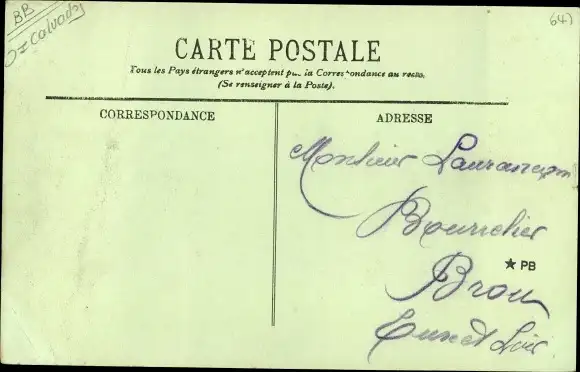 BB
Calvados
64)
CARTE POSTALE
Tous les Pays étrangers n'acceptent pas la Correspondance au recto.
(Se renseigner à la Poste).
CORRESPONDANCE
ADRESSE
Monsieur
Bourrelier
★ PB
Brou
Eure et Loir